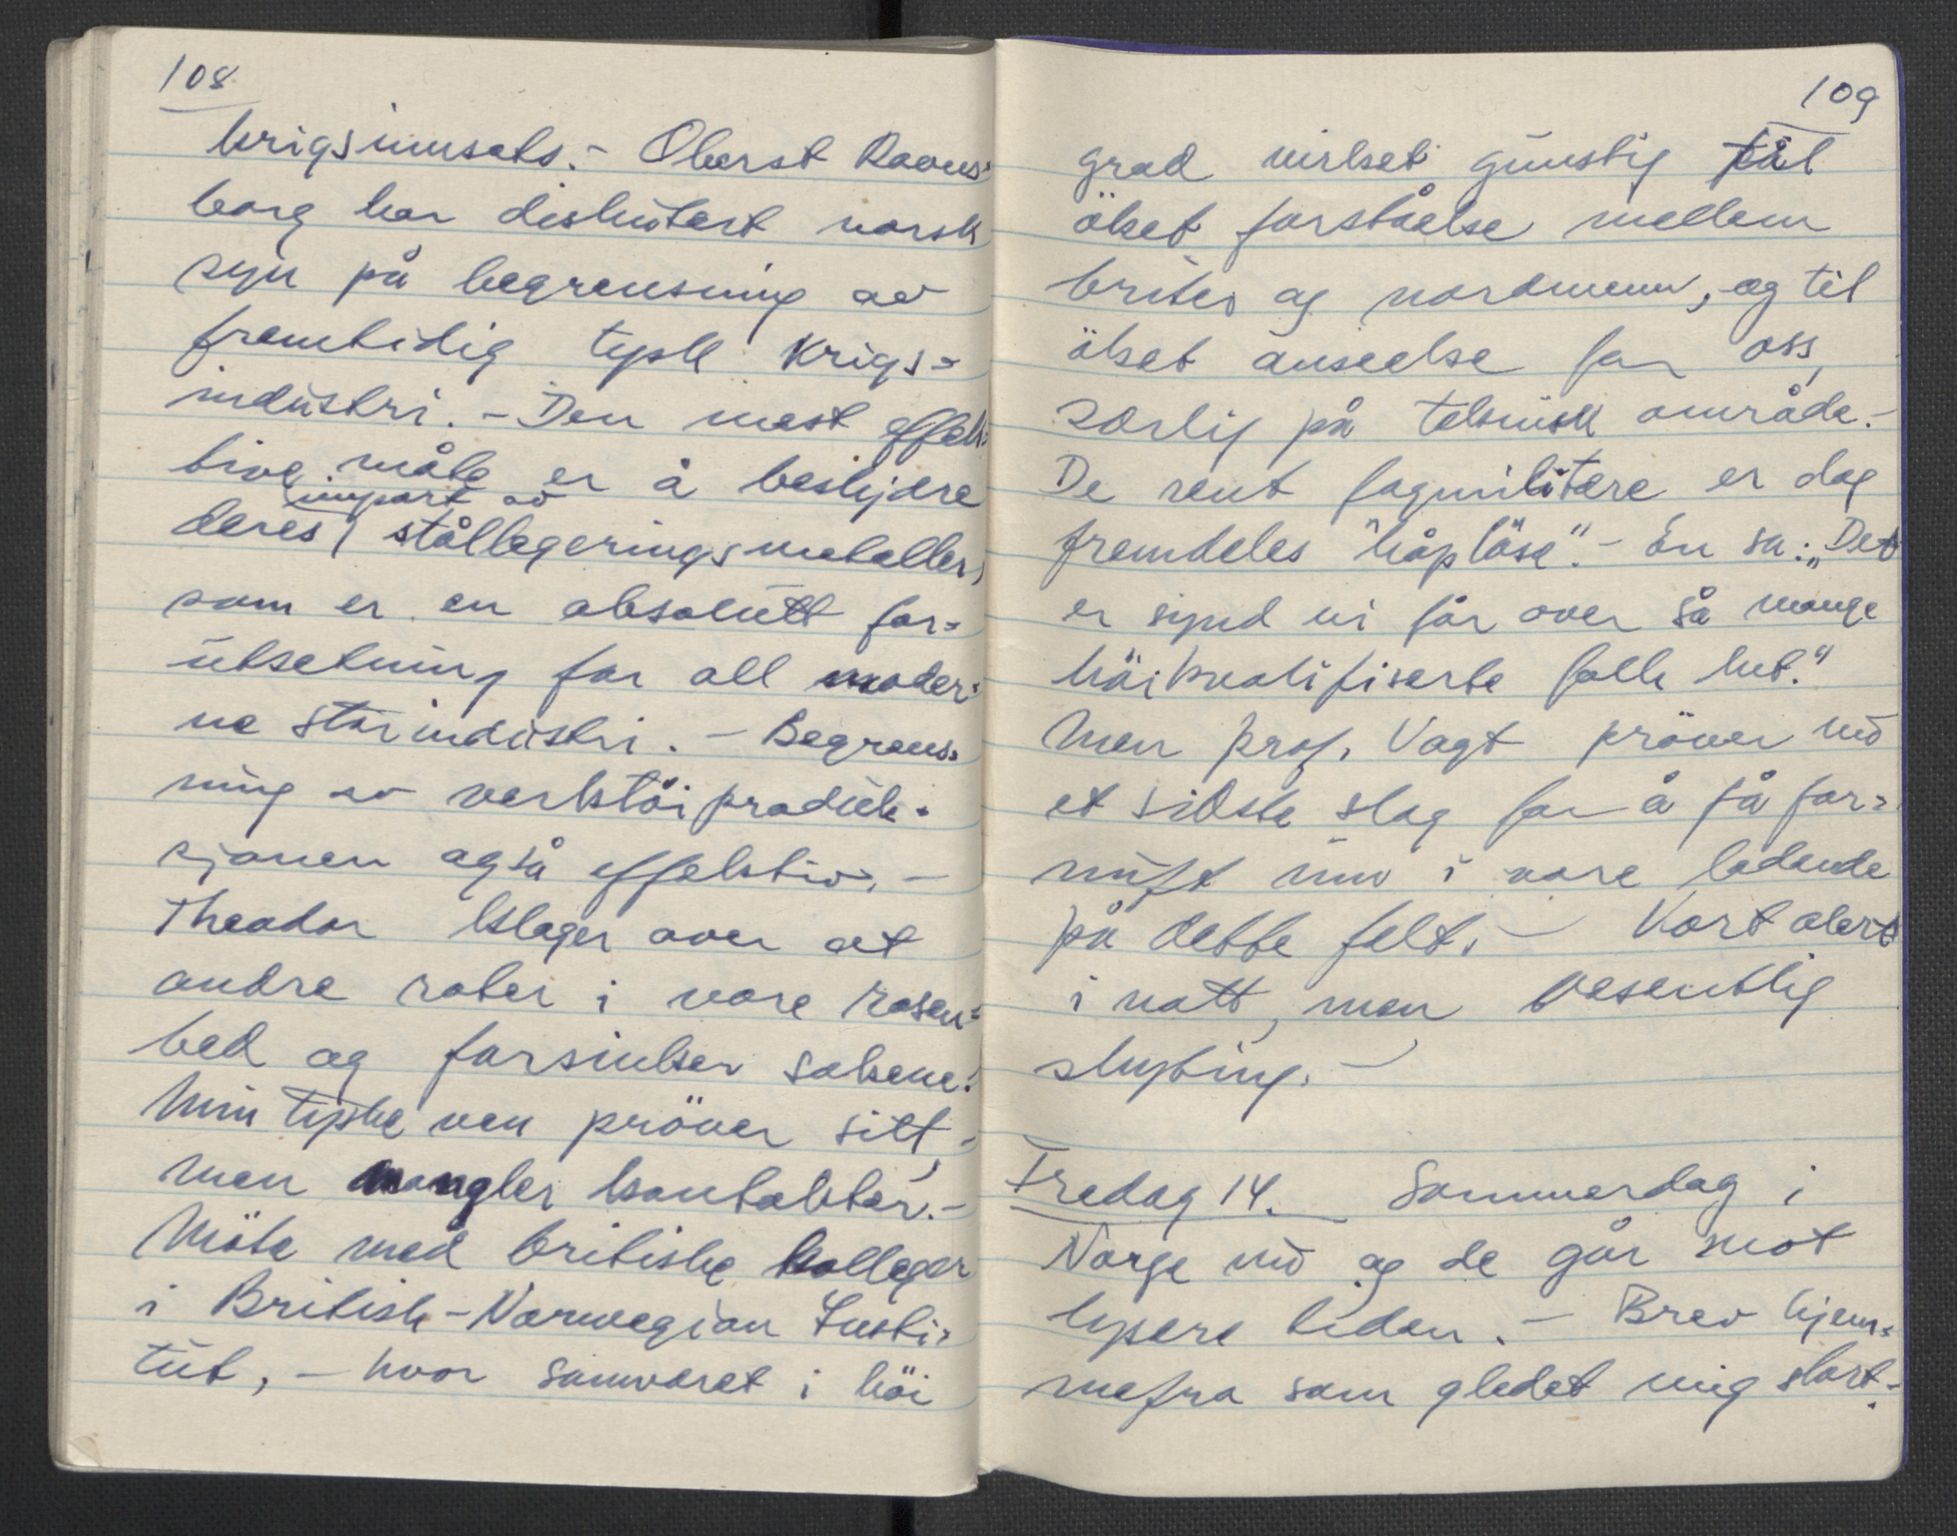 108
krigsinnsats.- Oberst Ravns=
borg har diskutert norsk
syn på begrensning av
fremtidig tysk krigs=
industri. - Den mest effek=
tive måte er å beskjære
import av
deres stållegeringsmetaller,
som er en absolutt for=
utsetning for all moder=
ne storindustri. - Begrens=
ning av verktöiproduk=
sjonen også effektiv. -
Theodor klager over at
andre roter i vore rosen=
bed og forsinker sakene.
Min tyske ven pröver sitt,-
men mangler kontakter.-
Möte med britiske kolleger
i British-Norwegian Insti=
tut, - hvor samværet i höi
109
grad virket gunstig til
öket forståelse mellem
briter og nordmenn, og til
öket anseelse for oss,
særlig på teknisk område.-
De rent fagmilitære er dog
fremdeles "håplöse". - Én sa: „Det
er synd vi får over så mange
höikvalifiserte folk hit."
Men prof. Vogt pröver nu
et sidste slag for å få for=
nuft inn i vore ledende
på dette felt. - Kort alert
i natt, men vesentlig
skyting. -
Fredag 14. Sommerdag i
Norge nu og de går mot
lysere tider. - Brev hjem=
mefra som gledet mig stort.-